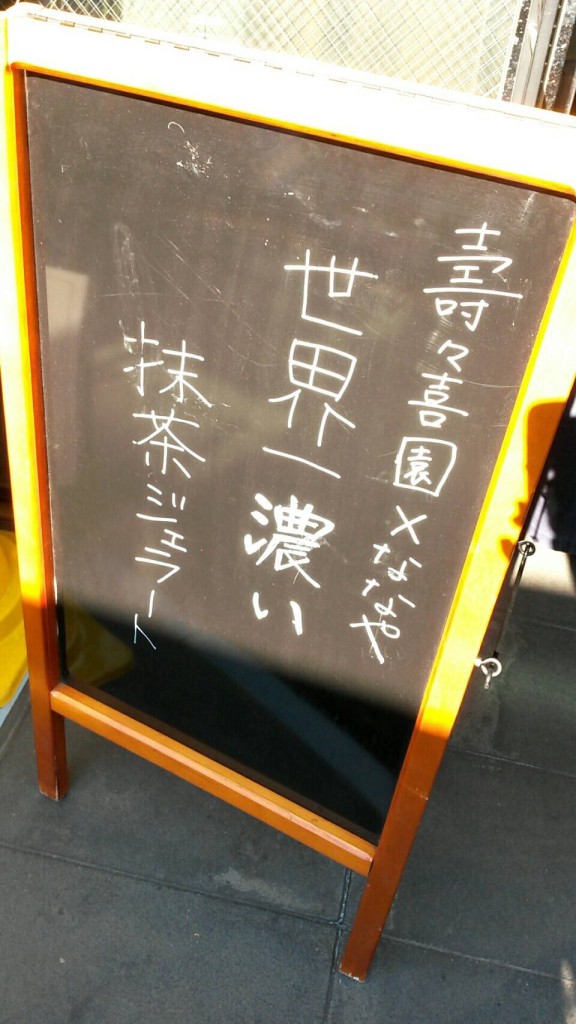 壽々喜園×ななや
世界一濃い
抹茶ジェラート